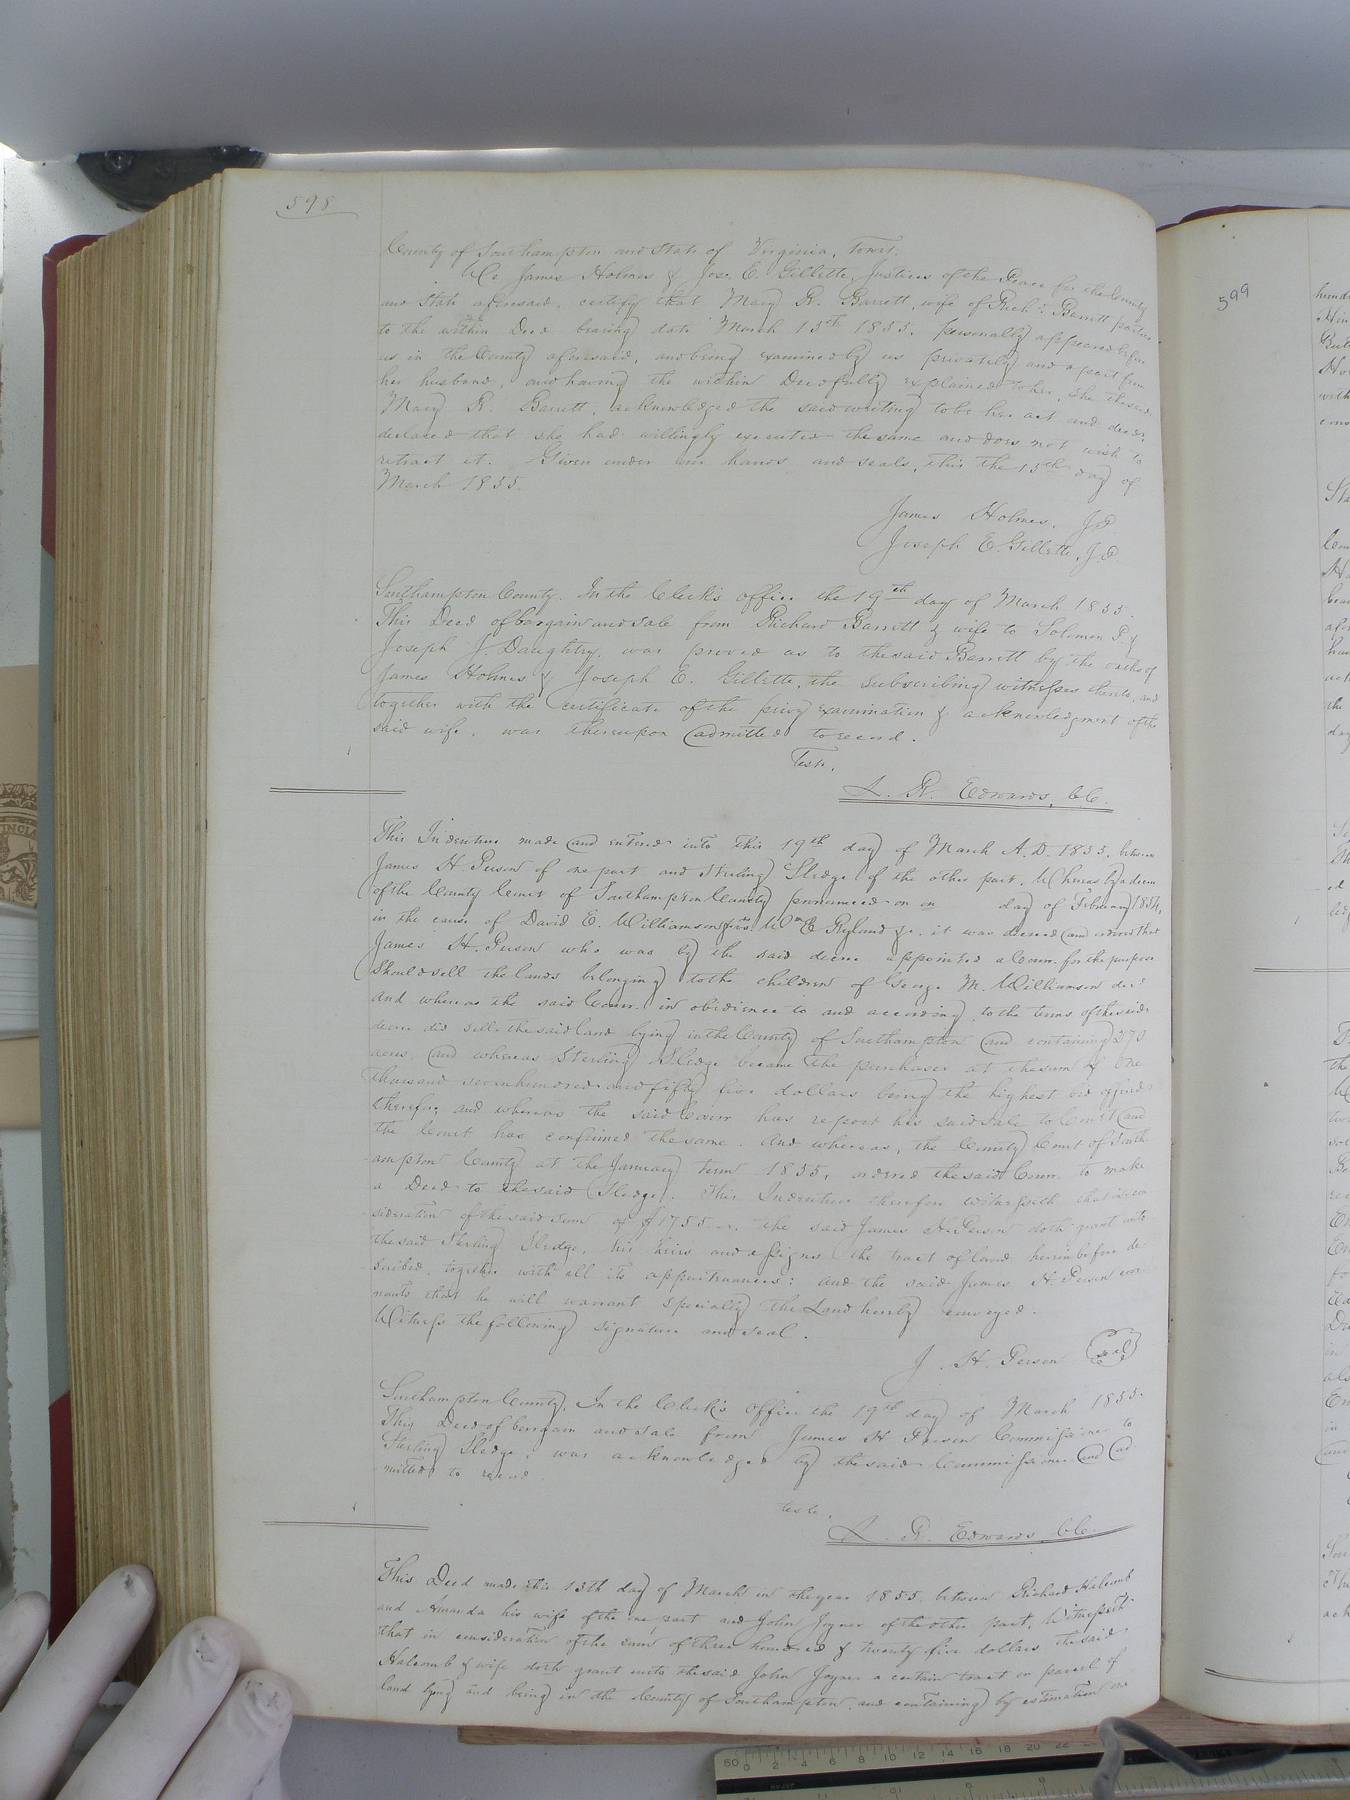 598
County of Southampton and State of Virginia, towit.
We James Holmes & Jos. E. Gillette, Justices of the Peace for the County
and State aforesaid, certify that Mary R. Barrett, wife of Richd. Barrett parties
to the within Deed bearing date March 15th 1855. personally appeared before
us in the County aforesaid, and being examined by us privately and apart from
her husband, and having the within Deed fully explained to her, She the said
Mary R. Barrett, acknowledged the said writing to be her act and deed,
declared that she had willingly executed the same and does not wish to
retract it. Given under our hands and seals, this the 15th day of
March 1855.
James Holmes, J.P.
Joseph E. Gillette, J.P.
Southampton County. In the Clerk's office the 19th day of March 1855.
This Deed of bargain and sale from Richard Barrett & wife to Solomon P. &
Joseph J. Daughtry, was proved as to the said Barrett by the oaths of
James Holmes & Joseph E. Gillette, the Subscribing witnesses thereto, and
together with the certificate of the privy examination & acknowledgment of the
said wife, was thereupon admitted to record.
Teste,
L. R. Edwards, C.C.
This Indenture made and entered into this 19th day of March A.D. 1855, between
James H. Person of one part and Sterling Sledge of the other part. Whereas by a decree
of the County Court of Southampton County pronounced on in day of February 1854,
in the cause of David E. Williamson &c vs. Wm. E. Ryland &c. it was decreed and ordered that
James H. Person who was by the said decree appointed a Comr. for the purpose
Should sell the lands belonging to the children of George M. Williamson decd.
and whereas the said Comr. in obedience to and according to the terms of the said
decree did sell the said land lying in the County of Southampton and containing 270
acres, and whereas Sterling Sledge became the purchaser at the sum of One
thousand seven hundred and fifty five dollars being the highest bid offered
therefor, and whereas the said Comr has report his said sale to Court and
the Court has confirmed the same. And whereas, the County Court of South
ampton County at the January term 1855, ordered the said Comr. to make
a Deed to the said Sledge. This Indenture therefore witnesseth that in con
sideration of the said sum of $1755 the said James H. Person doth grant unto
the said Sterling Sledge, his heirs and assigns the tract of land herein before de
scribed, together with all its appurtenances: and the said James H. Person cov
nants that he will warrant specially the Land hereby conveyed.
Witness the following signature and seal.
J. H. Person Seal
Southampton County, In the Clerk's Office the 19th day of March 1855.
This Deed of bargain and sale from James H Person Commissioner to
Sterling Sledge, was acknowledged by the said Commissioner and ad
mitted to record.
teste,
L. R. Edwards C.C.
This Deed made this 13th day of March in the year 1855, between Richard Halcomb
and Amanda his wife of the one part and John Joyner of the other part, Witnesseth
that in consideration of the sum of three hundred & twenty five dollars the said
Halcomb & wife doth grant unto the said John Joyner a certain tract or parcel of
land lying and being in the County of Southampton, and containing by estimation one
599